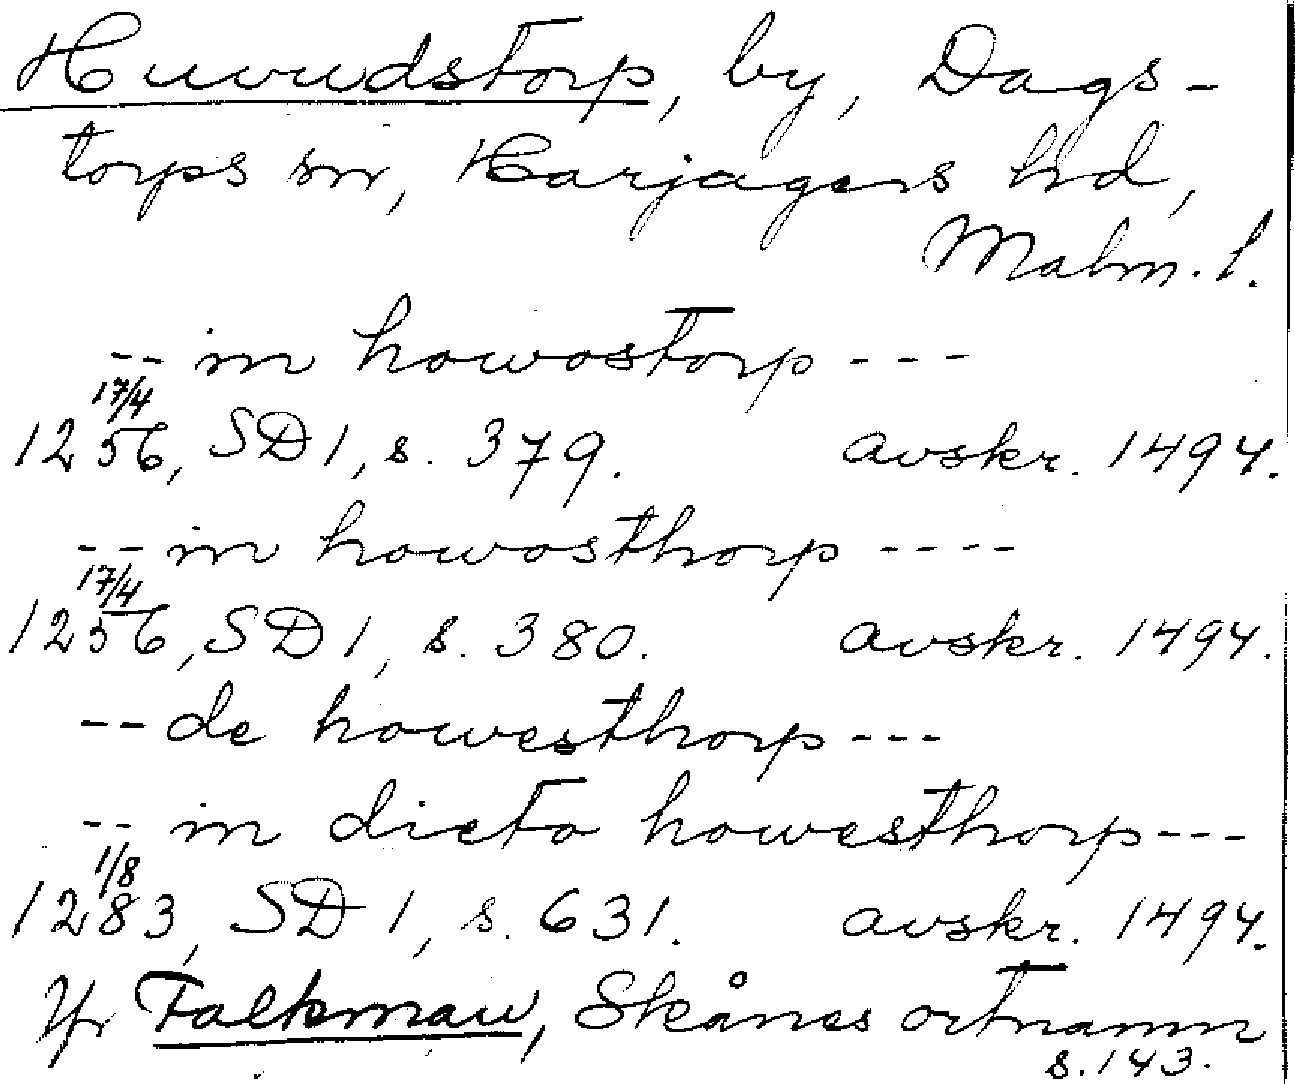 Huvudstorp, by, Dags-
torps sn, Harjagers hd,
Malm. l.
-- in howostorp ---
17/4
1256, SD 1, s. 379. avskr. 1494.
-- in howosthorp ----
17/4
1256, SD 1, s. 380. avskr. 1494.
-- de howesthorp ---
-- in dicto howesthorp ---
1/8
1283, SD 1, s. 631. avskr. 1494.
Jfr Falkman, Skånes ortnamn
s. 143.